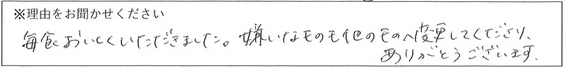 ※理由をお聞かせください
毎食おいしくいただきました。嫌いなものも他のものへ変更してくださり、
ありがとうございます。